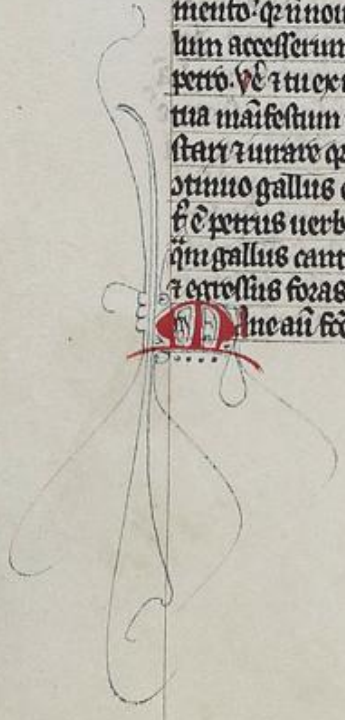 mento. qꝛ n̄ noui
lum accesserunt
petro. Ve̅ ⁊ tu ex i
tua manifestum
stari ⁊ iurare qꝛ
ↄtinuo gallus c
ē petrus uerb
gallus cant
⁊ egressus foras
Mane aū fc̄o